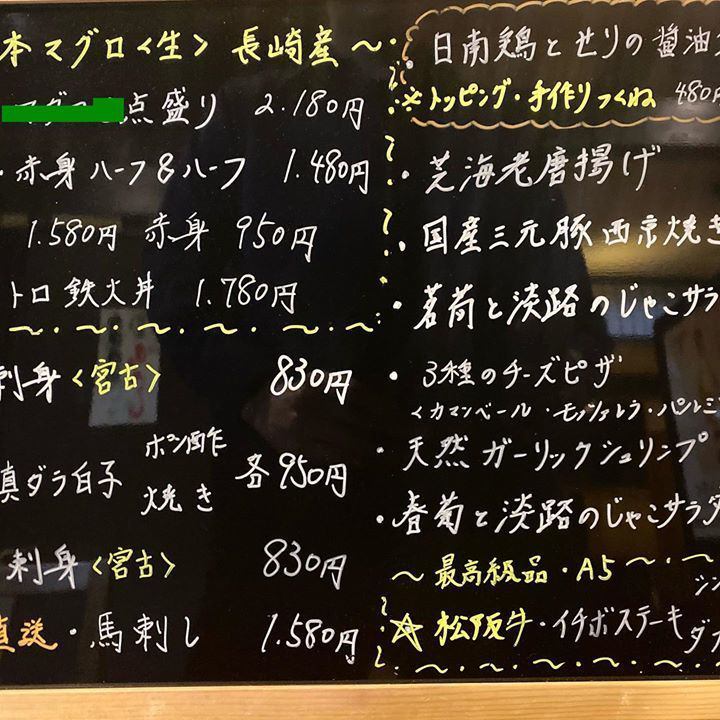 本マグロ〈生〉 長崎産～
点盛り 2.180円
・赤身ハーフ&ハーフ 1.480円
1.580円 赤身 950円
トロ鉄火丼 1.780円
刺身〈宮古〉 830円
真ダラ白子 ポン酢 焼き 各950円
刺身〈宮古〉 830円
直送・馬刺し 1.580円
・日南鶏とせりの醤油
※トッピング・手作りつくね 480円
・芝海老唐揚げ
・国産三元豚西京焼き
・茗荷と淡路のじゃこサラ
・3種のチーズピザ
〈カマンベール・モッツァレラ・パルミ
・天然ガーリックシュリンプ
・春菊と淡路のじゃこサラダ
～最高級品・A5～
☆松阪牛・イチボステーキ